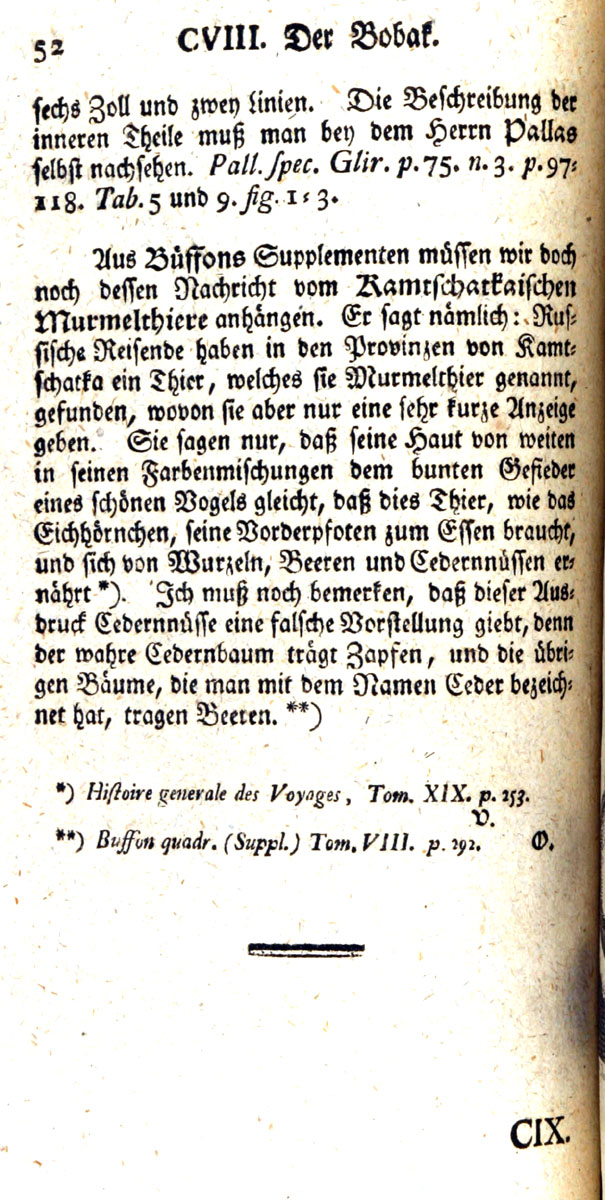 52 CVIII. Der Bobak.
sechs Zoll und zwey Linien. Die Beschreibung der
inneren Theile muß man bey dem Herrn Pallas
selbst nachsehen. Pall. spec. Glir. p. 75. n. 3. p. 97-
118. Tab. 5 und 9. fig. 1-3.
Aus Büffons Supplementen müssen wir doch
noch dessen Nachricht vom Kamtschatkaischen
Murmelthiere anhängen. Er sagt nämlich: Rus-
sische Reisende haben in den Provinzen von Kamt-
schatka ein Thier, welches sie Murmelthier genannt,
gefunden, wovon sie aber nur eine sehr kurze Anzeige
geben. Sie sagen nur, daß seine Haut von weiten
in seinen Farbenmischungen dem bunten Gefieder
eines schönen Vogels gleicht, daß dies Thier, wie das
Eichhörnchen, seine Vorderpfoten zum Essen braucht,
und sich von Wurzeln, Beeren und Cedernnüssen er-
nährt *). Ich muß noch bemerken, daß dieser Aus-
druck Cedernnüsse eine falsche Vorstellung giebt, denn
der wahre Cedernbaum trägt Zapfen, und die übri-
gen Bäume, die man mit dem Namen Ceder bezeich-
net hat, tragen Beeren. **)
*) Histoire generale des Voyages, Tom. XIX. p. 253.
V.
**) Buffon quadr. (Suppl.) Tom. VIII. p. 292. O.
CIX.